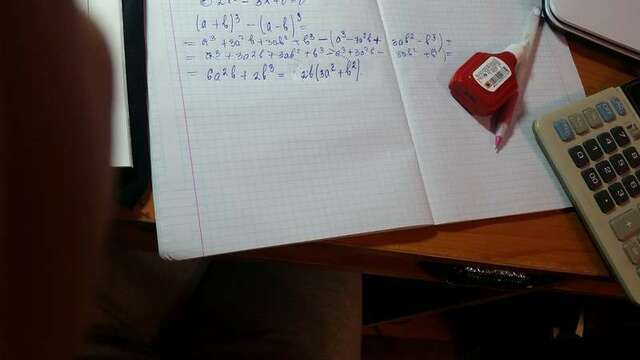 (a + b)³ - (a - b)³ =
= a³ + 3a²b + 3ab² + b³ - (a³ - 3a²b + 3ab² - b³) =
= a³ + 3a²b + 3ab² + b³ - a³ + 3a²b - 3ab² + b³ =
= 6a²b + 2b³ = 2b(3a² + b²)